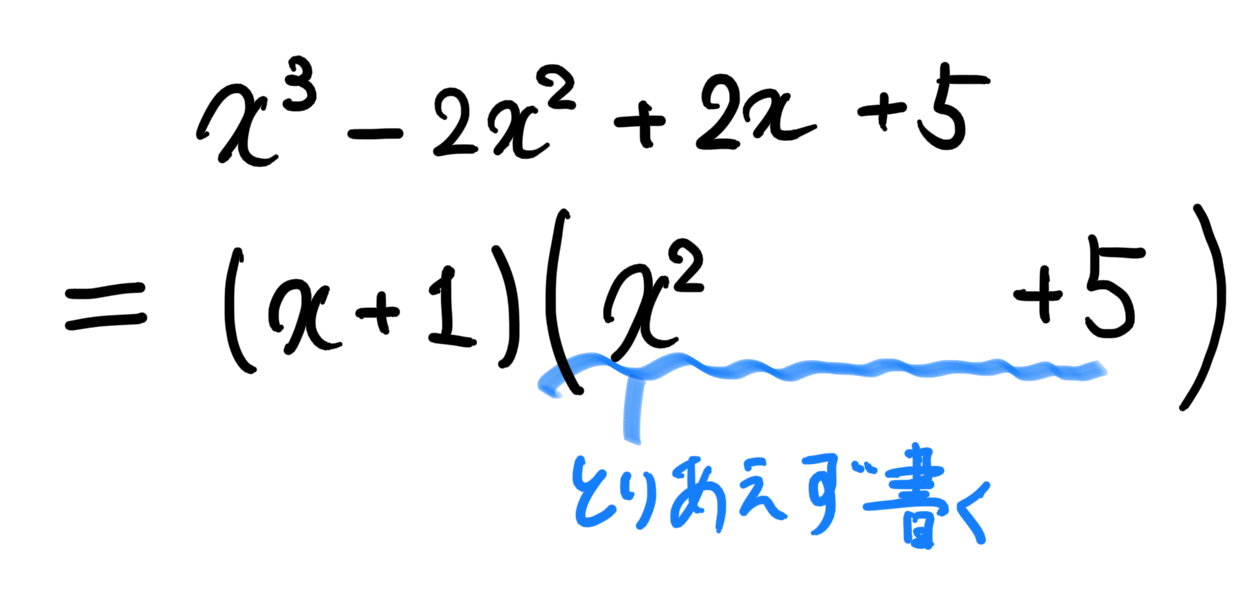 x³ - 2x² + 2x + 5
= (x+1)(x² +5)
とりあえず書く